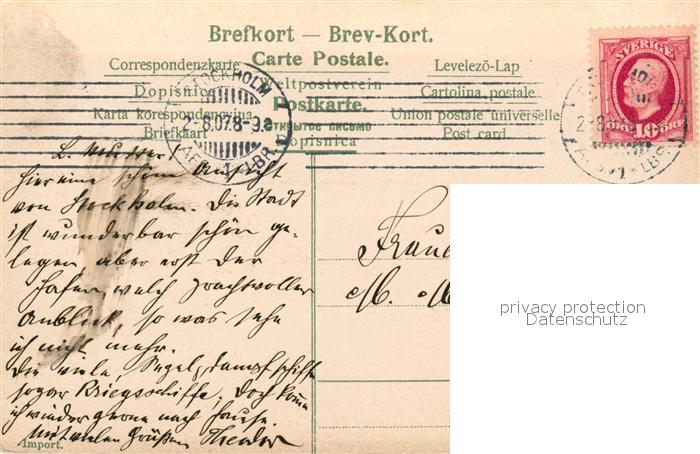 Brefkort — Brev-Kort.
Carte Postale.
Correspondenzkarte
Levelezö-Lap
Weltpostverein
Dopisnica
Cartolina postale
Postkarte.
Karta korespondencyjna
Union postale universelle
Briefkaart
Открытое письмо
Post card.
Dopisnica
STOCKHOLM
2.8.07.8-9
AFG. 1 LBR
SVERIGE
ÖRE 10 ÖRE
L. Mutter.
Hier eine schöne Ansicht
von Stockholm. Die Stadt
ist wunderbar schön ge-
legen, aber erst der
Hafen, welch prachtvoller
Anblick, so was sehe
ich nicht mehr.
Die viele Segel, dampfschiffe
sogar Kriegsschiffe. Doch komme
ich wieder gerne nach Hause.
Mit vielen Grüßen Theodor
Import.
Frau
M. M
privacy protection
Datenschutz